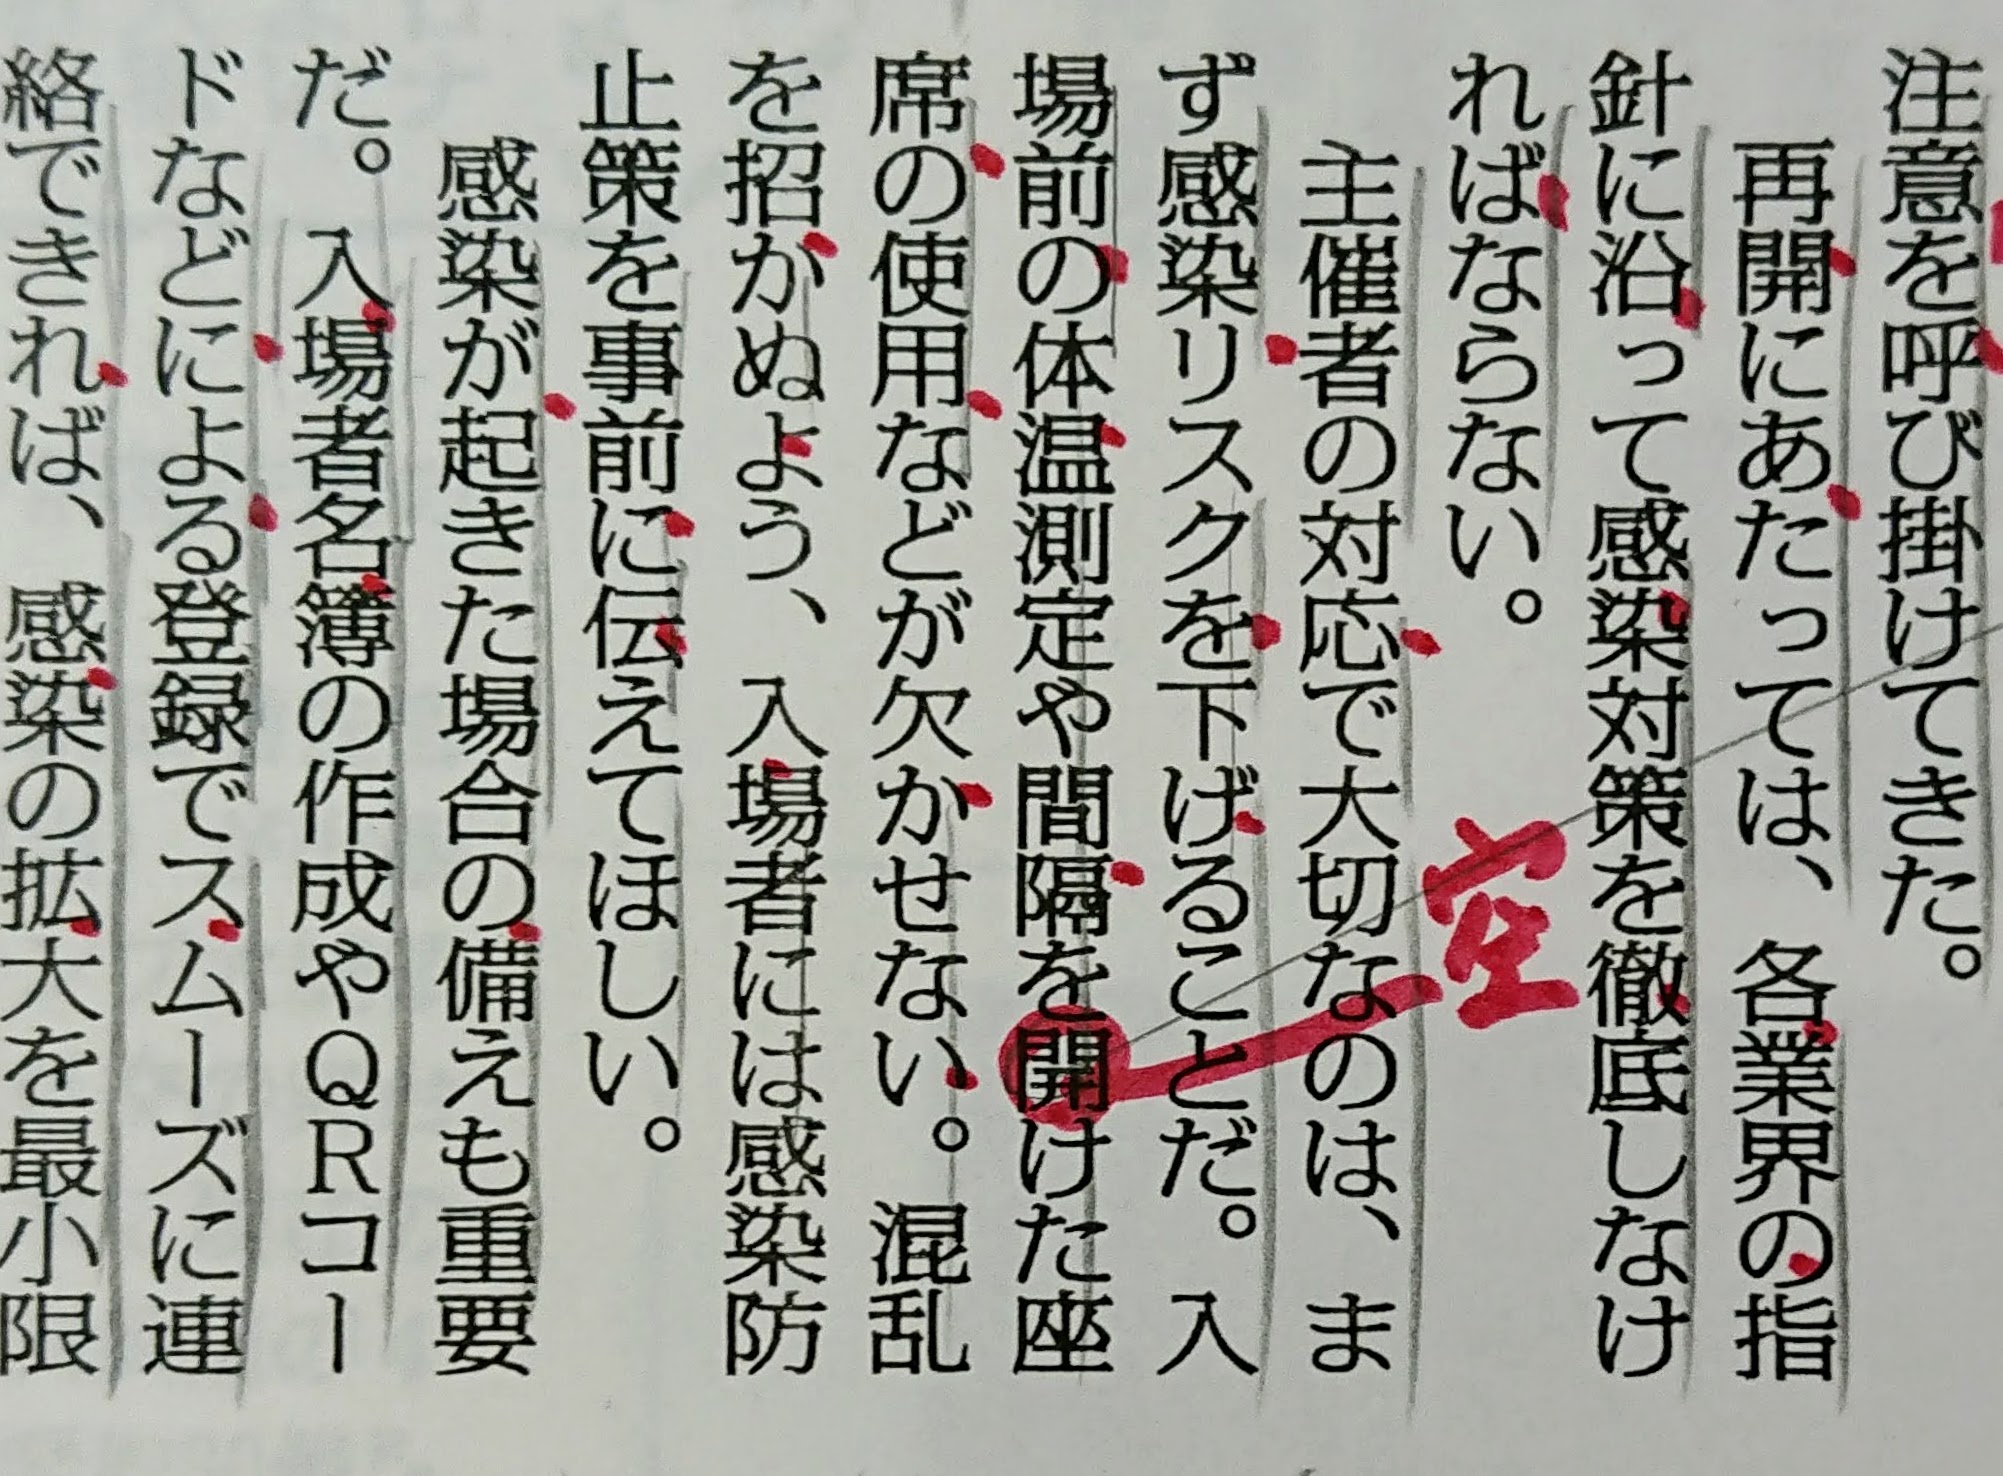 注意を呼び掛けてきた。
再開にあたっては、各業界の指
針に沿って感染対策を徹底しなけ
ればならない。
空
主催者の対応で大切なのは、ま
ず感染リスクを下げることだ。入
場前の体温測定や間隔を開けた座
席の使用などが欠かせない。混乱
を招かぬよう、入場者には感染防
止策を事前に伝えてほしい。
感染が起きた場合の備えも重要
だ。入場者名簿の作成やQRコー
ドなどによる登録でスムーズに連
絡できれば、感染の拡大を最小限